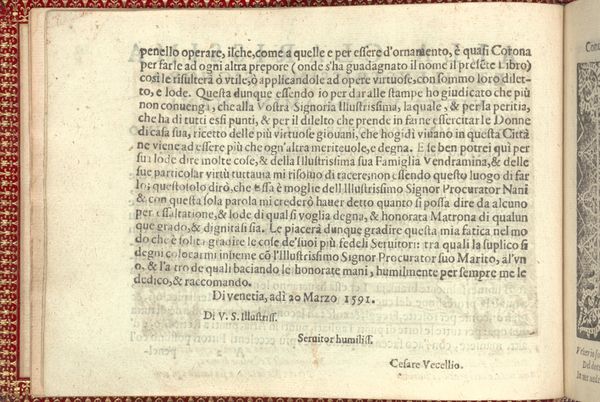 penello operare, ilche, come a quelle e per essere d'ornamento, è quasi Corona
per farle ad ogni altra prepore (onde s'ha guadagnato il nome il presẽte Libro)
così le risulterà ò vtile, ò applicandole ad opere virtuose, con sommo loro dilet-
to, e lode. Questa dunque essendo io per dar alle stampe ho giudicato che più
non conuenga, che alla Vostra Signoria Illustrissima, laquale, & per la peritia,
che ha di tutti essi punti, & per il diletto che prende in farne essercitar le Donne
di casa sua, ricetto delle più virtuose giouani, che hogidì viuano in questa Città
ne viene ad essere più che ogn'altra meriteuole, e degna. E se ben potrei quì per
sua lode dire molte cose, & della Illustrissima sua Famiglia Vendramina, & delle
sue particolar virtù tuttauia mi risoluo di tacere; non essendo questo luogo di far
lo; questo solo dirò, che essa è moglie dell'Illustrissimo Signor Procurator Nani
& con questa sola parola mi crederò hauer detto quanto si possa dire da alcuno
per essaltatione, & lode di qual si voglia degna, & honorata Matrona di qualun
que grado, & dignità si sia. Le piacerà dunque gradire questa mia fatica nel mo
do che è solita gradire le cose de'suoi più fedeli Seruitori: tra quali la suplico si
degni colocarmi insieme cõ l'Illustrissimo Signor Procurator suo Marito, al'vn
o, & l'altro de quali baciando le honorate mani, humilmente per sempre me le
dedico, & raccomando.
Di venetia, adì 20 Marzo 1591.
Di V. S. Illustriss.
Seruitor humiliss.
Cesare Vecellio.